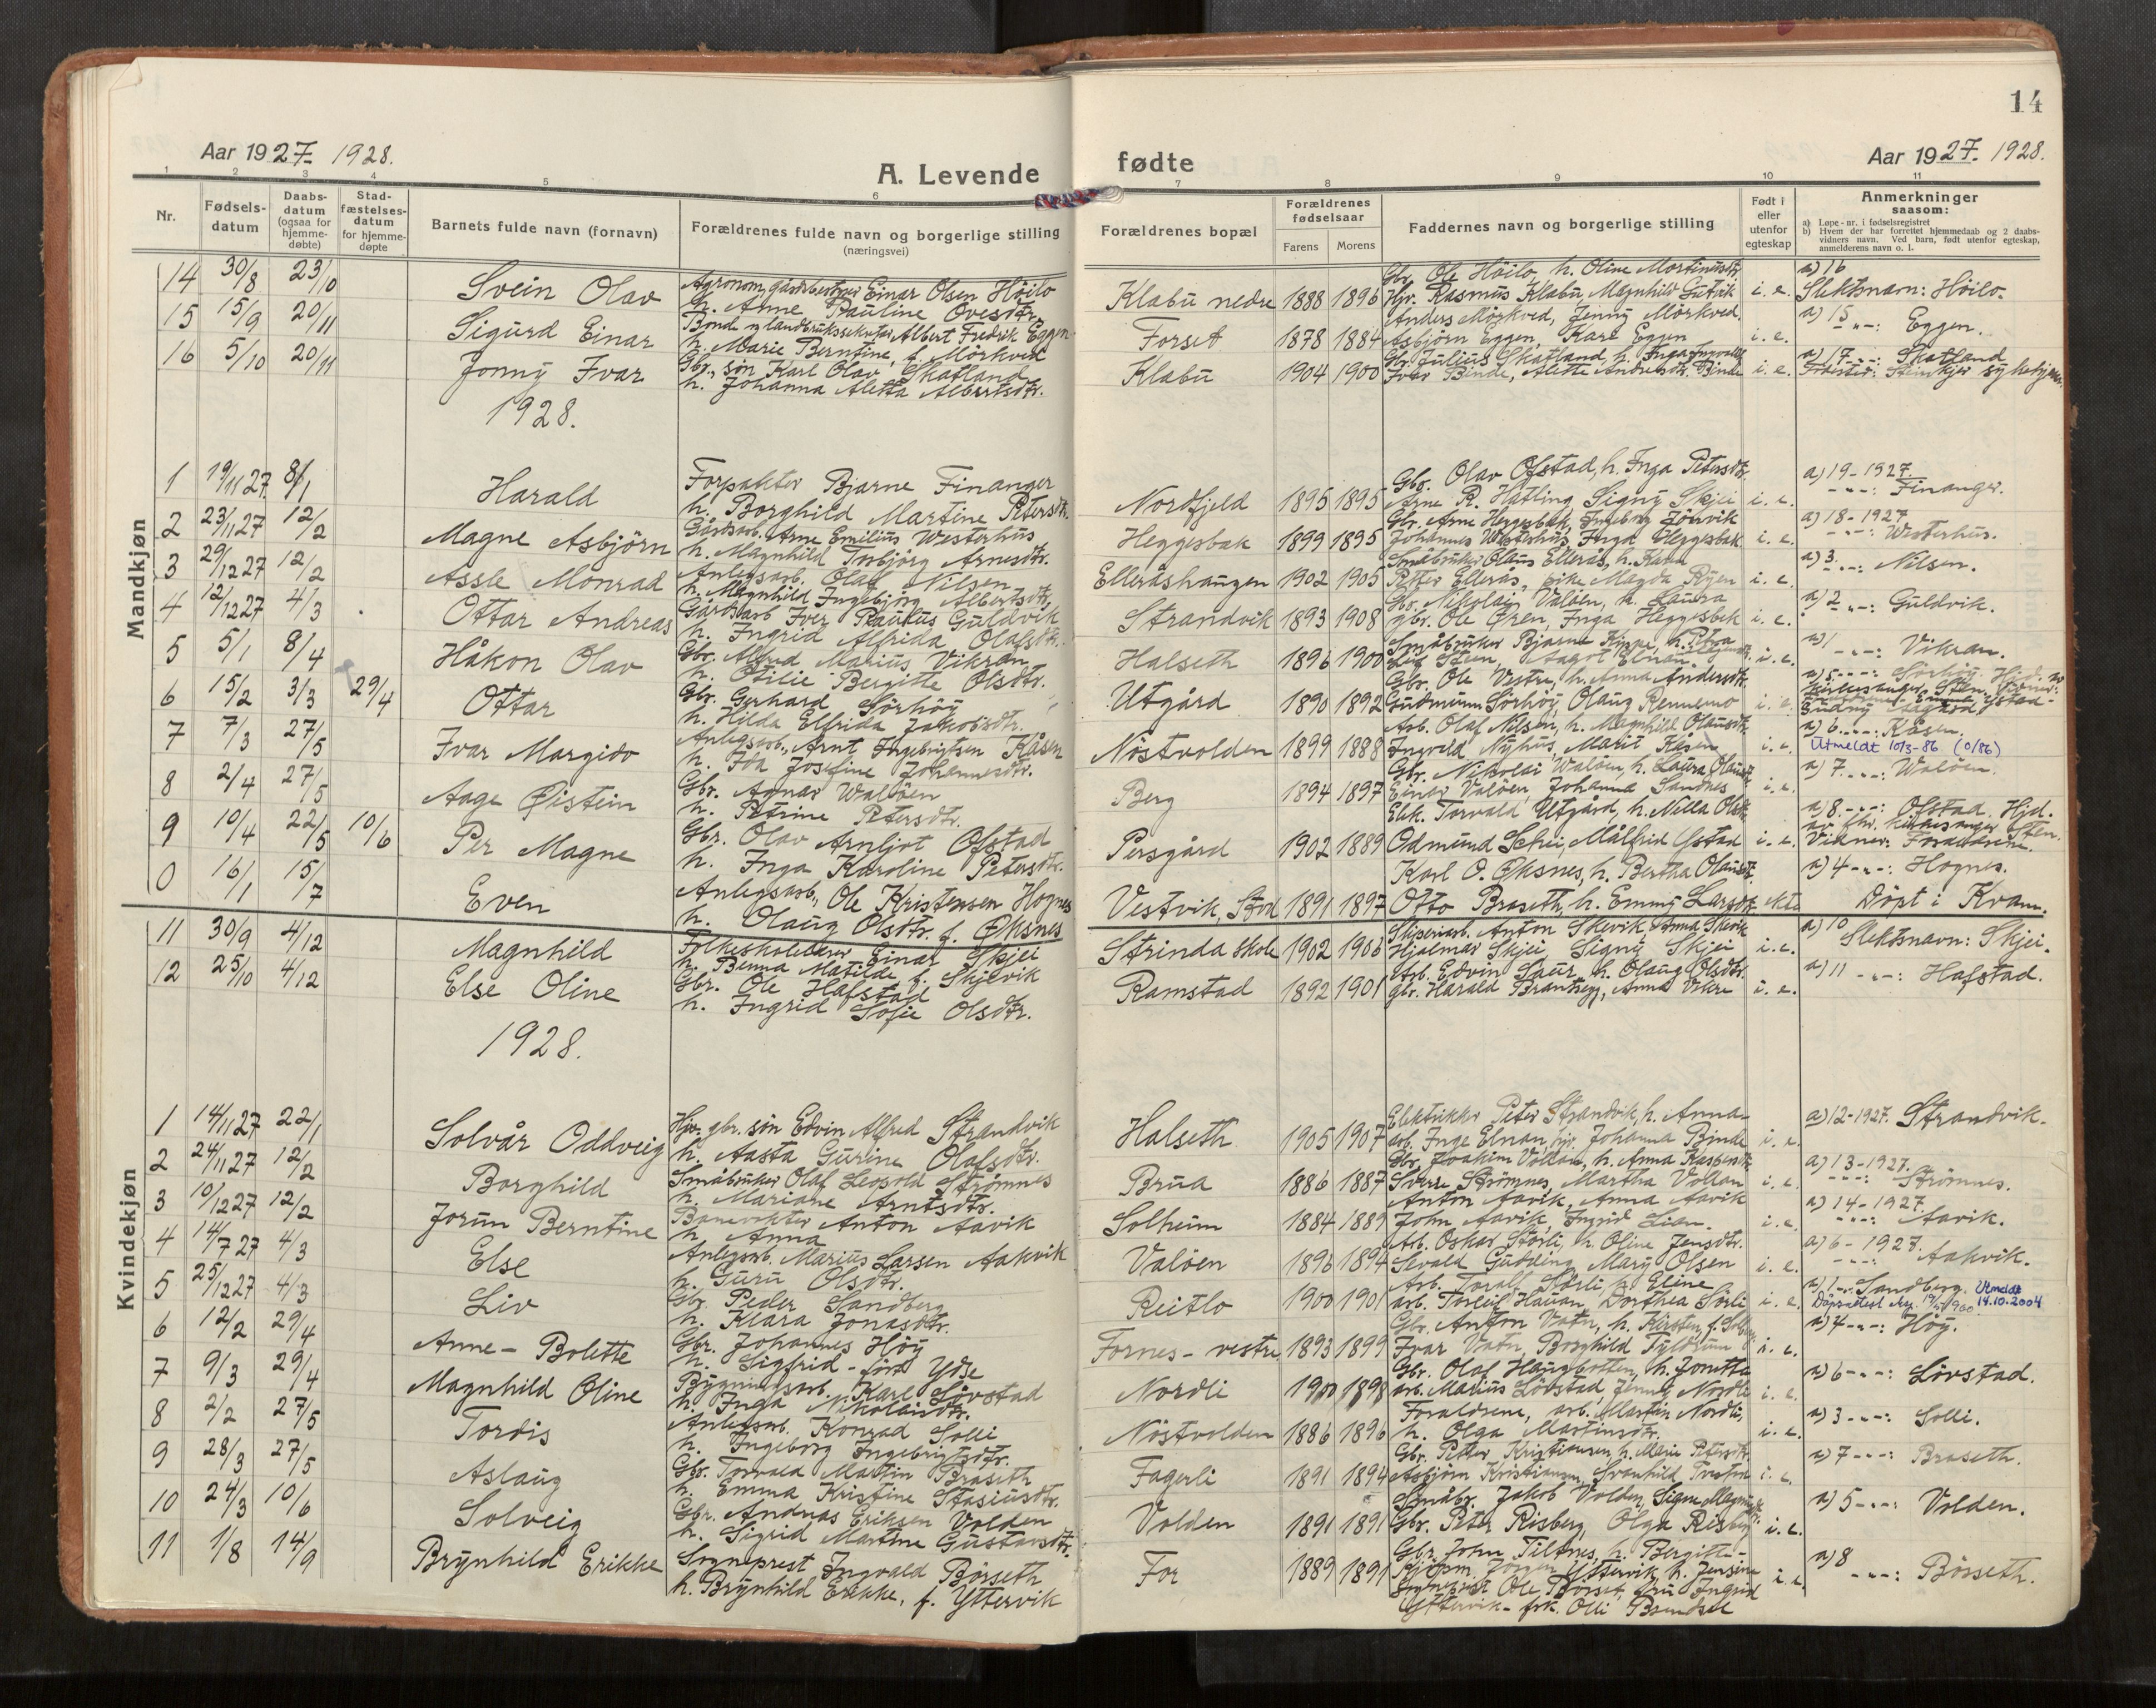 14
Aar 1927. 1928.
A. Levende
fødte
Aar 1927. 1928.
1 2 3 4 5 6 7 8 9 10 11
Nr.
Fødsels-
datum
Daabs-
datum
(ogsaa for
hjemme-
døbte)
Stad-
fæstelses-
datum
for hjemme-
døpte
Barnets fulde navn (fornavn)
Forældrenes fulde navn og borgerlige stilling
(næringsvei)
Forældrenes bopæl
Forældrenes
fødselsaar
Farens Morens
Faddernes navn og borgerlige stilling
Født i
eller
utenfor
egteskap
Anmerkninger
saasom:
a) Løpe-nr. i fødselsregistret
b) Hvem der har forrettet hjemmedaab og 2 daabs-
vidners navn. Ved barn, født utenfor egteskap,
anmelderens navn o. l.
Mandkjøn
14 30/8 23/10 Svein Olav
Agronom, gårdsbestyrer Einar Olsen Höilo
h. Anne Pauline Ovesdtr.
Klabu nedre 1888 1896
Gbr. Ole Höilo, h. Oline Mortinusdtr.
Hjv. Rasmus Klabu, Magnhild Gutvik i. e.
a) 16
Slektsnavn: Höilo
15 15/9 20/11 Sigurd Einar
Bonde og landbrukssekretær Albert Fredrik Eggen
h. Marie Berntine, f. Mörkved
Forset 1878 1884
Anders Mörkved, Jenny Mörkved.
Asbjörn Eggen, Kare Eggen i. e.
a) 15 -"-: Eggen.
16 5/10 20/11 Jonny Ivar
Gbr., sön Karl Olav Skatland
h. Johanna Aletta Albertsdtr.
Klabu 1904 1900
Gbr. Julius Skatland, h. Inga
Ivar Binde, Alette Andreasdtr. Binde i. e.
a) 17 -"-: Skatland
Födested: Steinkjer sykehjem.
1928.
1 19/11 27 8/1 Harald
Forpakter Bjarne Finanger
h. Borghild Martine Petersdtr.
Nordfjeld 1895 1895
Gbr. Olav Ofstad, h. Inga Petersdtr.
Arne R. Hatling, Signy Skjei i. e.
a) 19-1927
-"-: Finanger.
2 23/11 27 12/2 Magne Asbjörn
Gårdsarb. Arne Emilius Westerhus
h. Magnhild Torbjörg Arnesdtr.
Heggesbak 1899 1895
Gbr. Arne Heggesbak, Ingeborg Jörvik
Johannes Westerhus, Inga Heggesbak i. e.
a) 18-1927
-"-: Westerhus.
3 29/12 27 12/2 Assle Monrad
Anlegsarb. Olaf Nilsen
h. Magnhild Ingebjörg Albertsdtr.
Elleråshaugen 1902 1905
Småbruker Olaus Ellerås, h. Karen
Petter Ellerås, pike Magda Ryen i. e.
a) 3 -"-: Nilsen.
4 12/12 27 4/3 Ottar Andreas
Gårdsarb Iver Paulus Guldvik
h. Ingrid Alfrida Olafsdtr.
Strandvik 1893 1908
Gbr. Nikolai Valöen, h. Laura
gbr. Ole Gren, Inga Heggesbak i. e.
a) 2 -"-: Guldvik.
5 5/1 8/4 Håkon Olav
Gbr. Alfred Marius Vikran
h. Otilie Bergitte Olsdtr.
Halseth 1896 1900
Småbruker Bjarne Kippe, h. Petra
Aagot Elnan i. e.
a) 1 -"-: Vikran.
6 15/2 3/3 29/4 Ottar
Gbr. Gerhard Sörhöy
h. Hilda Elfrida Jakobsdtr.
Utgård 1890 1892
Gbr. Ole Vestre, h. Anna Andersdtr.
Gudmund Sörhöy, Olaug Rennemo i. e.
a) 5 -"-: Sörhöy. Hjd. av
kirkesanger Sten. Vidner:
7 7/3 27/5 Ivar Margido
Anlegsarb., Arnt Ingebrigtsen Kåsen
h. Ida Josefine Johannesdtr.
Nöstvolden 1899 1888
Arb. Olaf Nilsen, h. Magnhild Olausdtr.
Ingvald Nyhus, Marit Kåsen i. e.
a) 6 -"-: Kåsen.
Utmeldt 10/3-86 (0/86)
8 2/4 27/5 Aage Øistein
Gbr. Agnar Walöen
h. Petrine Petersdtr.
Berg 1894 1897
Gbr. Nikolai Walöen, h. Laura Olausdtr.
Einar Valöen, Johanna Sandnes i. e.
a) 7 -"-: Walöen.
9 10/4 22/5 10/6 Per Magne
Gbr. Olav Arnljot Ofstad
h. Inga Karoline Petersdtr.
Persgård 1902 1889
Torvald Utgård, h. Milla
Odmund Schei, Målfrid Ystad i. e.
a) 8 -"-: Ofstad. Hjd.
av fhv. kirkesanger Sten.
Vidner: Foreldrene.
0 16/1 15/7 Even
Anlegsarb., Ole Kristensen Hognes
h. Olaug Olsdtr. f. Øksnes
Vestvik, Stod 1891 1897
Karl O. Øksnes, h. Bertha Olausdtr.
Otto Braseth, h. Emmy Larsdtr. ekte
a) 4 -"-: Hognes.
Döpt i Kvam.
Kvindekjøn
11 30/9 4/12 Magnhild
Folkeskolelærer Einar Skjei
h. Benna Matilde f. Skjevik
Strinda skole 1902 1906
Anton Skevik, Anna Skevik
Hjalmar Skjei, Signy Skjei i. e.
a) 10
Slektsnavn: Skjei.
12 25/10 4/12 Else Oline
Gbr. Ole Hafstad
h. Ingrid Sofie Olsdtr.
Ramstad 1892 1901
Arb. Edvin Saur, h. Olaug Olsdtr.
gbr. Harald Brantsegg, Anna Vikre i. e.
a) 11 -"-: Hafstad.
1928.
1 14/11 27 22/1 Solvår Oddveig
Hjv. gbr. sön Edvin Alfred Strandvik
h. Aasta Gurine Olafsdtr.
Halseth 1905 1907
Elektriker Peter Strandvik, h. Anna
arb. Inge Elnan, Johanna Binde i. e.
a) 12-1927. Strandvik.
2 24/11 27 12/2 Borghild
Småbruker Olaf Leopold Strömnes
h. Mariane Arntsdtr.
Brua 1886 1887
Gbr. Joakim Vollan, h. Anna Kaspersdtr.
Sverre Strömnes, Martha Vollan i. e.
a) 13-1927.
-"-: Strömnes.
3 10/12 27 12/2 Jorun Berntine
Banevokter Anton Aavik
h. Anna
Solheim 1884 1889
Anton Aavik, Anna Aavik
John Aavik, Ingrid Lian. i. e.
a) 14-1927
-"-: Aavik.
4 14/7 27 4/3 Else
Anlegsarb. Marius Larsen Aakvik
h. Guru Olsdtr.
Valöen 1896 1894
Arb. Oskar Störli, h. Oline Jensdtr.
Sevald Gudding, Mary Olsen i. e.
a) 6-1927.
-"-: Aakvik.
5 25/12 27 4/3 Liv
Gbr. Peder Sandberg
h. Klara Jonasdtr.
Reitlo 1900 1901
Arb. Toralf Sörli, h. Eline
arb. Torleif Hauan, Dorthea Sörli i. e.
a) 1 -"- Sandberg. Utmeldt
14.10.2004
6 12/2 29/4 Anne-Bolette
Gbr. Johannes Höy
h. Sigfrid - född Ydse
Fornes-vestre 1893 1899
Gbr. Anton Vatn, h. Kirsten, f.
Ivar Vatn, Borghild Tyldum i. e.
a) 4 -"-: Höy.
7 9/3 29/4 Magnhild Oline
Bygningsarb. Karl Lövstad
h. Inga Nikolaisdtr.
Nordli 1900 1898
Gbr. Olaf Haugbotten, h. Jonetta
arb. Marius Lövstad, Jenny Nordli i. e.
a) 6 -"-: Lövstad.
8 2/2 27/5 Tordis
Anlegsarb. Konrad Solli
h. Ingeborg Ingebrigtsdtr.
Nöstvolden 1886 1896
Foreldrene, arb. Martin Nordli,
h. Olga Martinsdtr. i. e.
a) 3 -"-: Solli.
9 28/3 27/5 Aslaug
Gbr. Torvald Martin Braseth
h. Emma Kristine Stasiusdtr.
Fagerli 1891 1894
Gbr. Petter Kristiansen, h. Marie Petersdtr.
Asbjörn Kristiansen, Svanhild i. e.
a) 7 -"-: Braseth.
10 24/3 10/6 Solveig
Gbr. Andreas Eriksen Volden
h. Sigrid Martine Gustavsdtr.
Volden 1891 1891
Småbr. Jakob Volden, Signe
Gbr. Peter Risberg, Olga Risberg i. e.
a) 5 -"-: Volden.
11 1/8 14/9 Brynhild Erikke
Sogneprest Ingvald Börseth
h. Brynhild Erikke, f. Yttervik
For 1889 1891
Gbr. John Tiltnes, h. Bergitte-
Kjöpm. Jörgen Yttervik, h. Jensine
Sogneprest Ole Börset, fru Ingrid
Yttervik - frk. Olli i. e.
a) 8
-"-: Börseth.